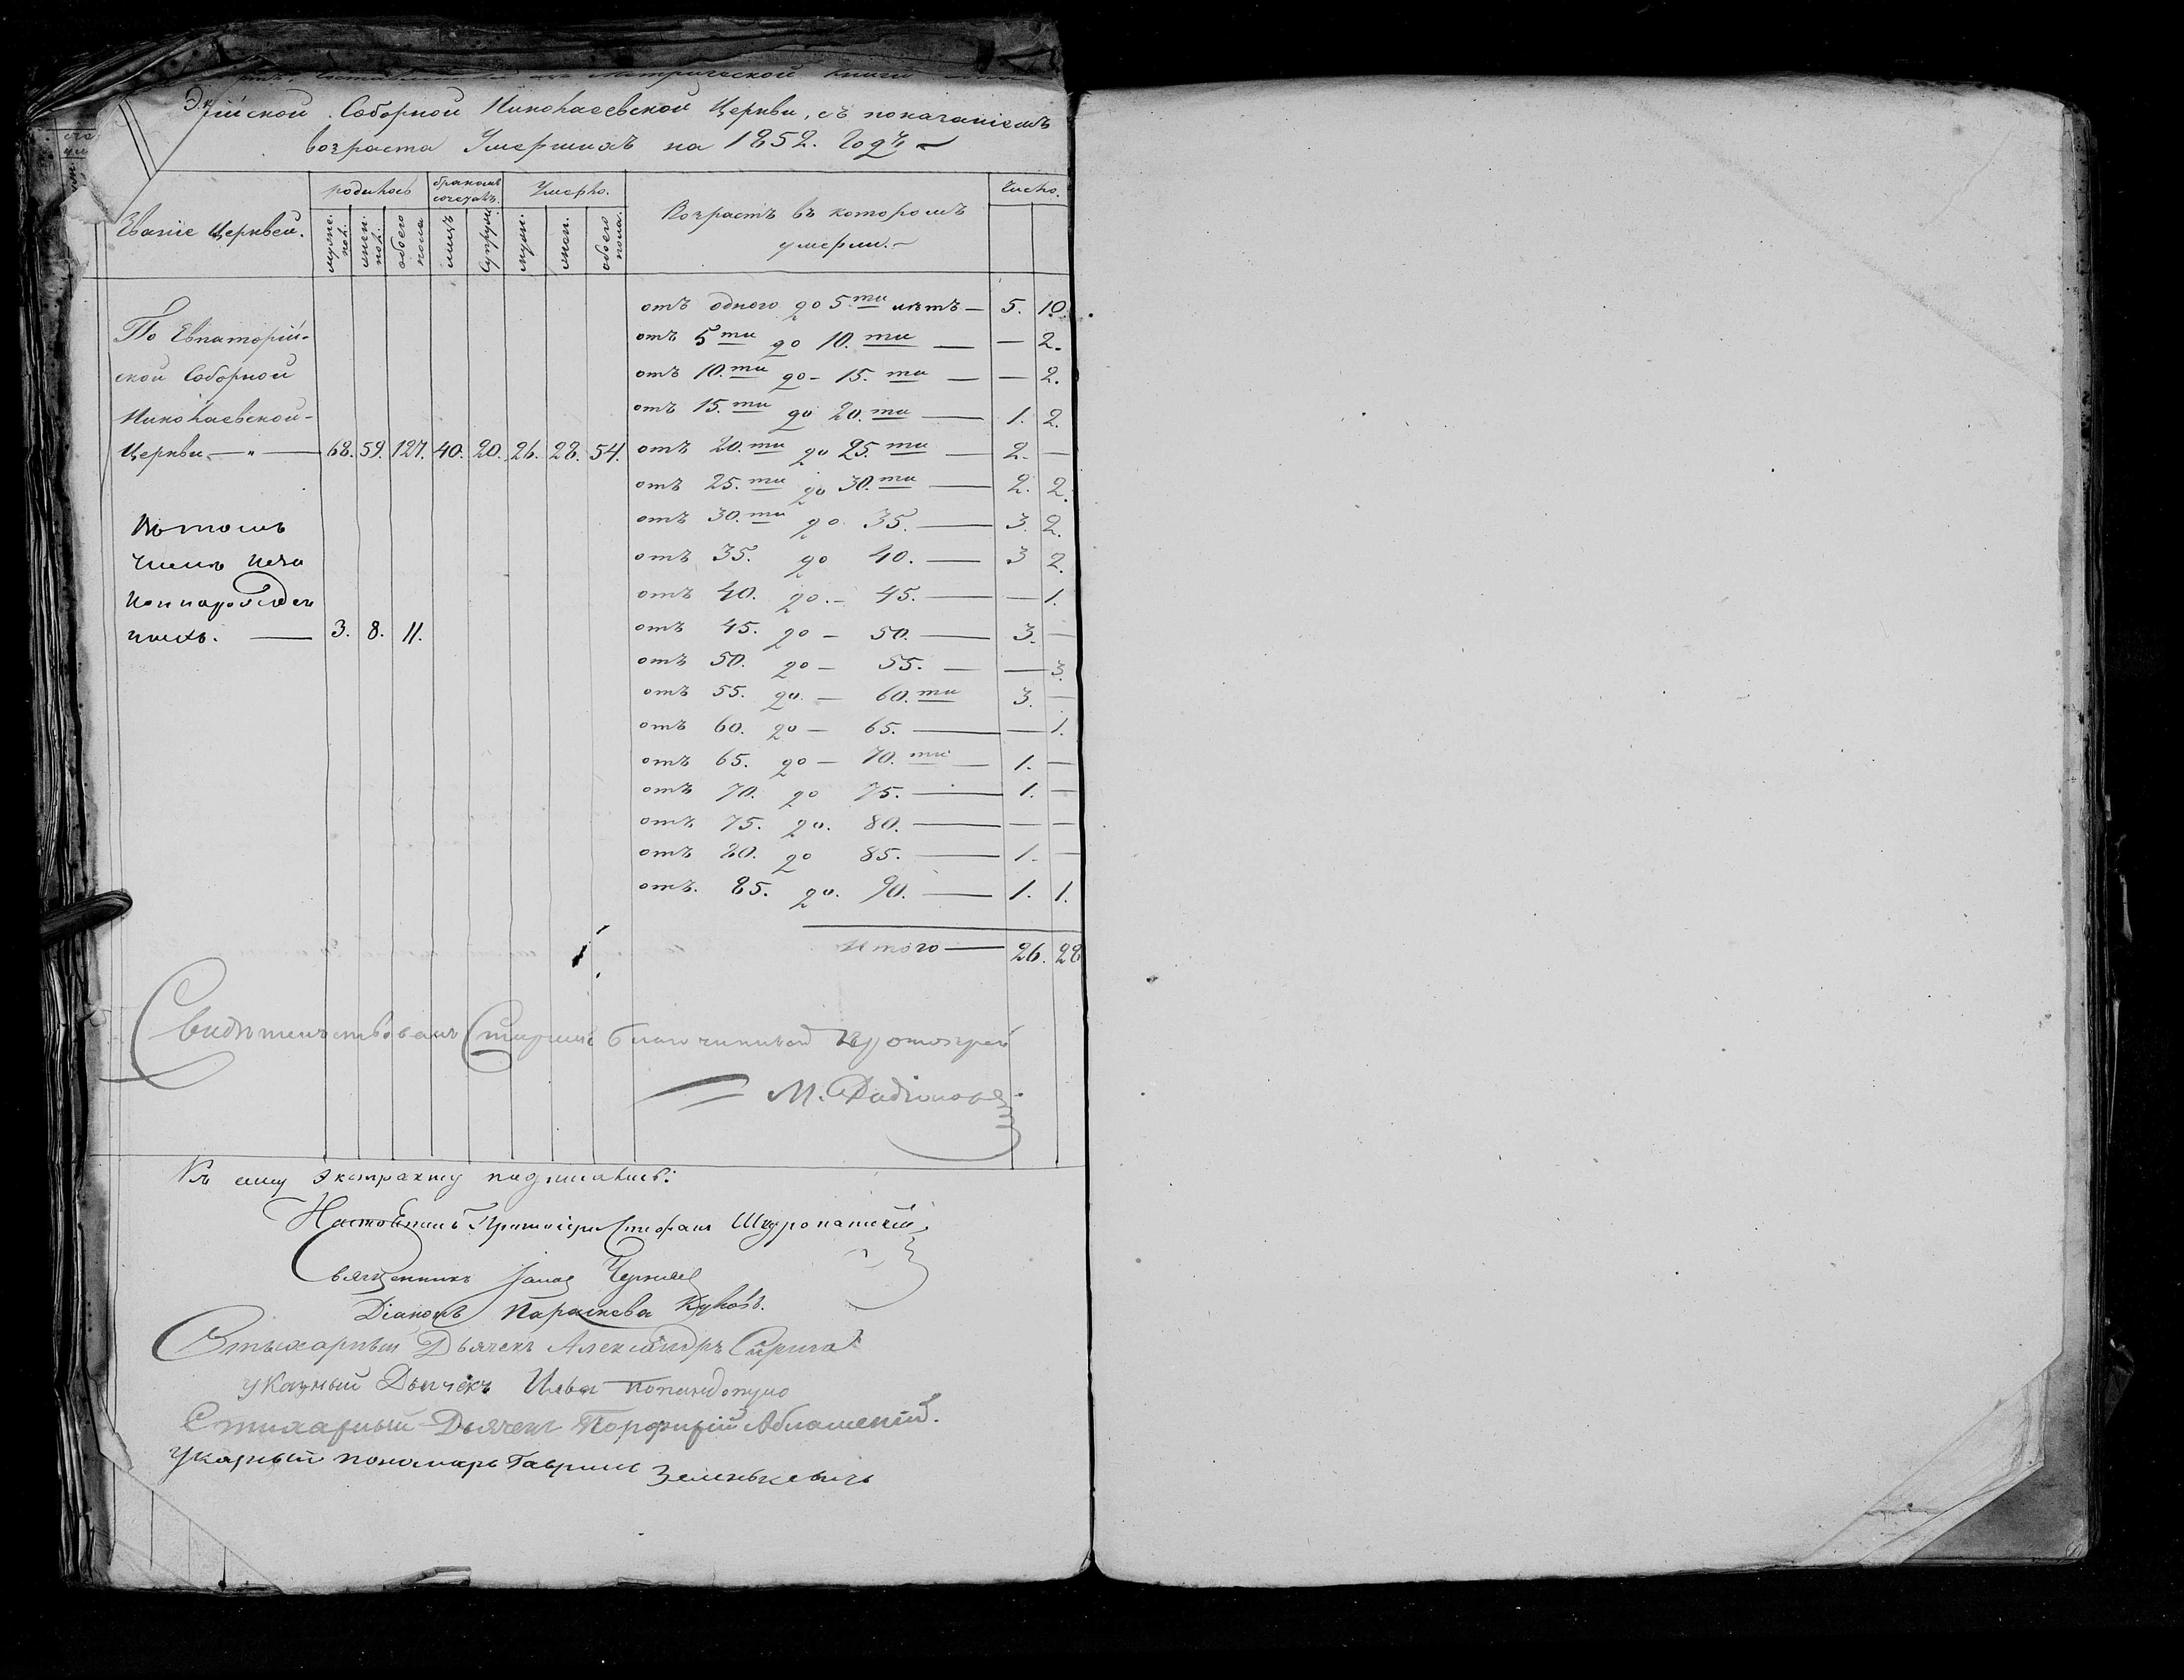 Метрической книги
Соборной Николаевской Церкви, съ показаніемъ
возраста Умершихъ на 1852. Годъ
Званіе Церквей.
родилось
бракомъ сочетав.
Умерло.
Возрастъ въ которомъ
умерли.
Число.
муже. пол.
жен. пол.
обоего пола
лицъ
супруж.
муж.
жен.
обоего пола.
По Евпаторій-
ской Соборной
Николаевской-
Церкви — „ — 68. 59. 127. 40. 20. 26. 28. 54.
Въ томъ
числѣ
3. 8. 11.
отъ одного до 5.ти лѣтъ — 5. 10.
отъ 5 ти до 10. ти — — 2.
отъ 10. ти до - 15. ти — — 2.
отъ 15. ти до 20. ти — 1. 2.
отъ 20. ти до 25. ти — 2. —
отъ 25. ти до 30. ти — 2. 2.
отъ 30. ти до 35. — 3. 2.
отъ 35. до 40. — 3 2.
отъ 40. до. - 45. — — 1.
отъ 45. до - 50. — 3. —
отъ 50. до - 55. — — 3.
отъ 55. до. - 60. ти 3. —
отъ 60. до - 65. — — 1.
отъ 65. до - 70. ти — 1. —
отъ 70. до 75. — 1. —
отъ 75. до. 80. — — —
отъ 80. до 85. — 1. —
отъ. 85. до. 90. — 1. 1.
итого — 26. 28
Свидѣтельствовалъ Старшій благочинный Протоіерей
М. Родіоновъ
Къ сему экстракту подписались:
Настоятель Протоіерей Стефанъ
Священникъ
Діаконъ
Стихарный Дьячекъ Александръ
указный Дьячекъ Илья
Стихарный Дьячекъ Порфирій
Указный пономарь Гавріилъ Зеленькевичъ